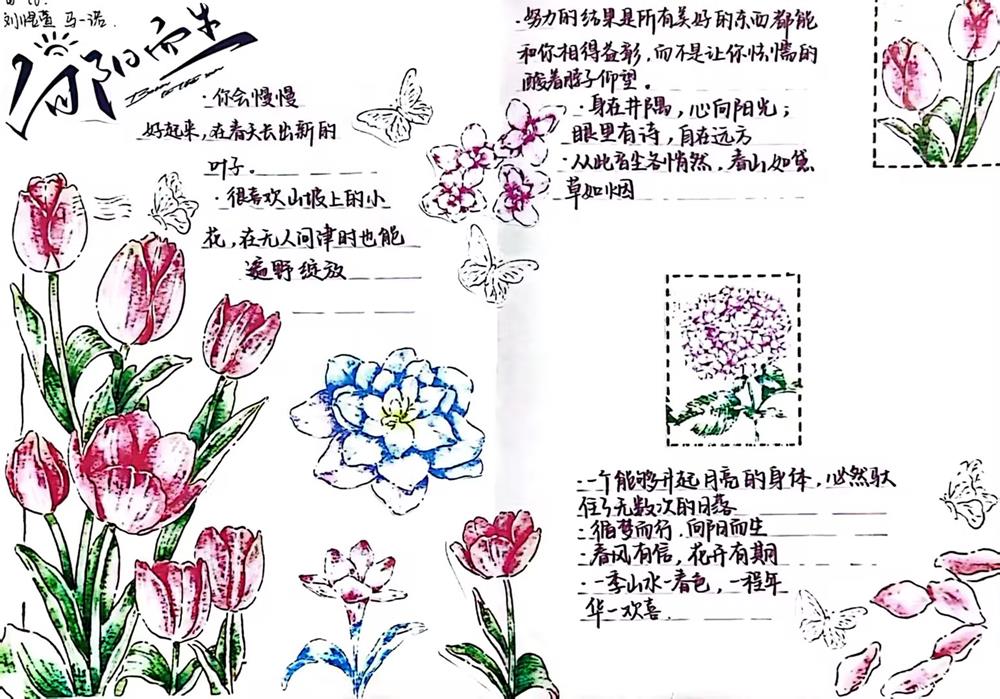 马一诺.
向阳而生
Born to the sun
·你会慢慢
好起来,在春天长出新的
叶子.
·很喜欢山坡上的小
花,在无人问津时也能
遍野绽放
·努力的结果是所有美好的东西都能
和你相得益彰,而不是让你怯懦的
酸着脖子仰望。
·身在井隅,心向阳光;
眼里有诗,自在远方
·从此音尘各悄然,春山如黛
草如烟
·一个能够升起月亮的身体,必然驮
住了无数次的日落
·循梦而行,向阳而生
·春风有信,花开有期
·一季山水一春色,一程年
华一欢喜.